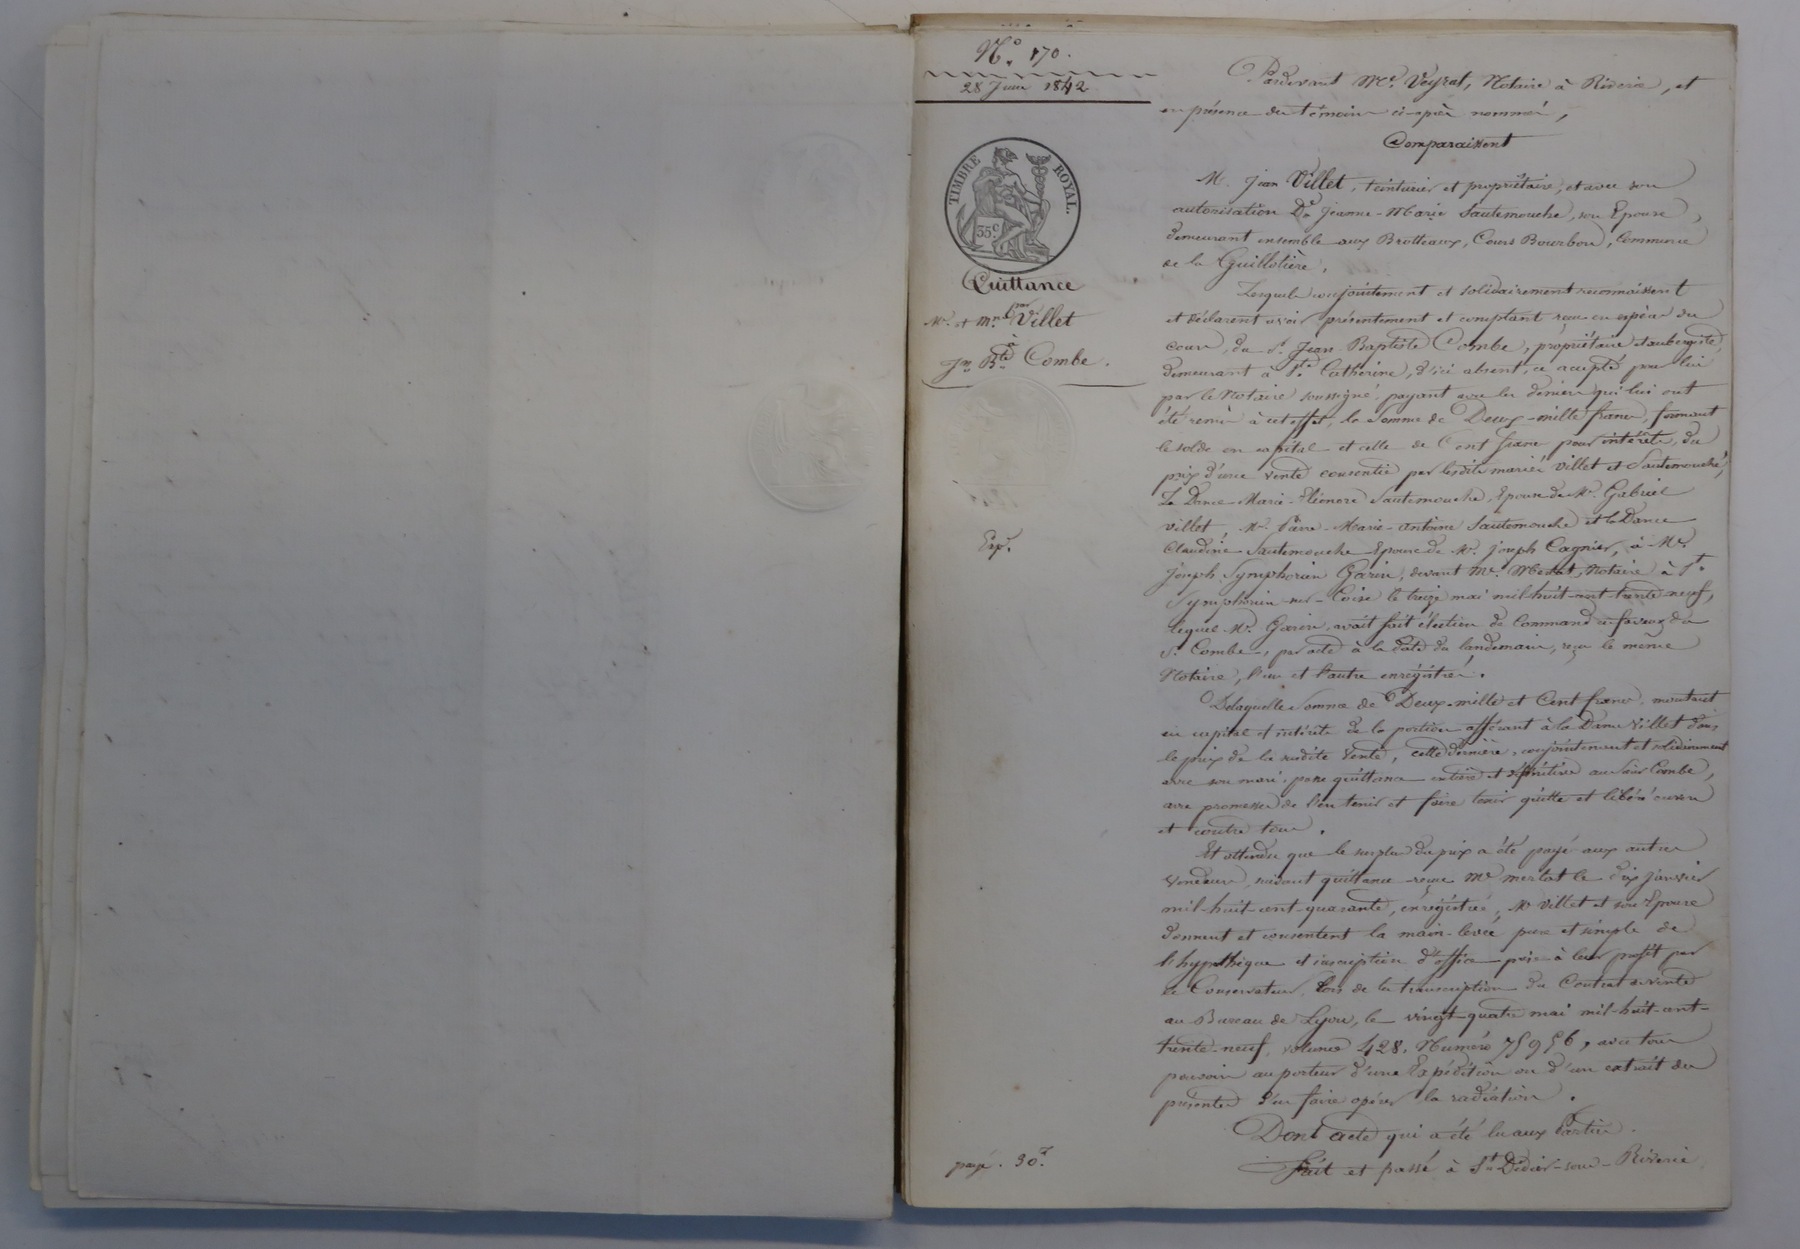 N.° 170.
28 Juin 1842
TIMBRE ROYAL.
35c.
Quittance
par
Mr. et Mme. Villet
à
Jn. Bte. Combe.
Exp.
payé. 30.
Pardevant Me. Veyrat, Notaire à Riverie, et
en présence des témoins ci-après nommés,
Comparaissent
M. Jean Villet, teinturier et propriétaire, et avec son
autorisation De. Jeanne-Marie Sautemouche, son Epouse,
demeurant ensemble aux Brotteaux, Cours Bourbon, Commune
de la Guillotière,
Lesquels conjointement et solidairement reconnaissent
et déclarent avoir présentement et comptant reçu en espèces du
cours, du Sr. Jean Baptiste Combe, propriétaire et aubergiste,
demeurant à Ste. Catherine, d'ici absent, ce accepté pour lui
par le Notaire soussigné, payant avec les deniers qui lui ont
été remis à cet effet, la somme de Deux-mille francs, formant
le solde en capital et celle de Cent francs pour intérêts, du
prix d'une vente consentie par lesdits mariés Villet et Sautemouche,
La Dame Marie-Eléonore Sautemouche, Epouse de Mr. Gabriel
Villet, Mr. Pierre-Marie-Antoine Sautemouche et la Dame
Claudine Sautemouche Epouse de Mr. Joseph Cagnier, à Mr.
Joseph Symphorien Garin, devant Me. Mertat, Notaire à St.
Symphorien-sur-Coise le treize mai mil-huit-cent-trente-neuf,
lequel Mr. Garin avait fait élection de Command en faveur du
Sr. Combe, par acte à la date du landemain, reçu le même
Notaire, l'un et l'autre enrégistrés.
Delaquelle somme de Deux-mille et Cent francs, montant
en capital et intérêts de la portion afférant à la Dame Villet dans
le prix de la susdite vente, cette dernière, conjointement et solidairement
avec son mari, passe quittance entière et définitive au Sieur Combe,
avec promesse de l'en tenir et faire tenir quitte et libéré envers
et contre tous.
Et attendu que le surplus du prix a été payé aux autres
vendeurs, suivant quittance reçue Me Mertat le dix janvier
mil-huit-cent-quarante, enrégistrée, Mr Villet et son Epouse
donnent et consentent la main-levée pure et simple de
l'hypothèque et inscription d'office prise à leur profit par
le Conservateur, lors de la transcription du Contrat de vente
au Bureau de Lyon, le vingt-quatre mai mil-huit-cent-
trente-neuf, volume 428, Numéro 75956, avec tous
pouvoirs au porteur d'une Expédition ou d'un extrait des
présentes d'en faire opérer la radiation.
Dont acte qui a été lu aux Parties.
Fait et passé à St. Didier-sous-Riverie